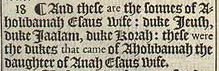 18 ¶ And these are the sonnes of A-
holibamah Esaus wife : duke Jeush,
duke Jaalam, duke Korah : these were
the dukes that came of Aholibamah the
daughter of Anah Esaus wife.